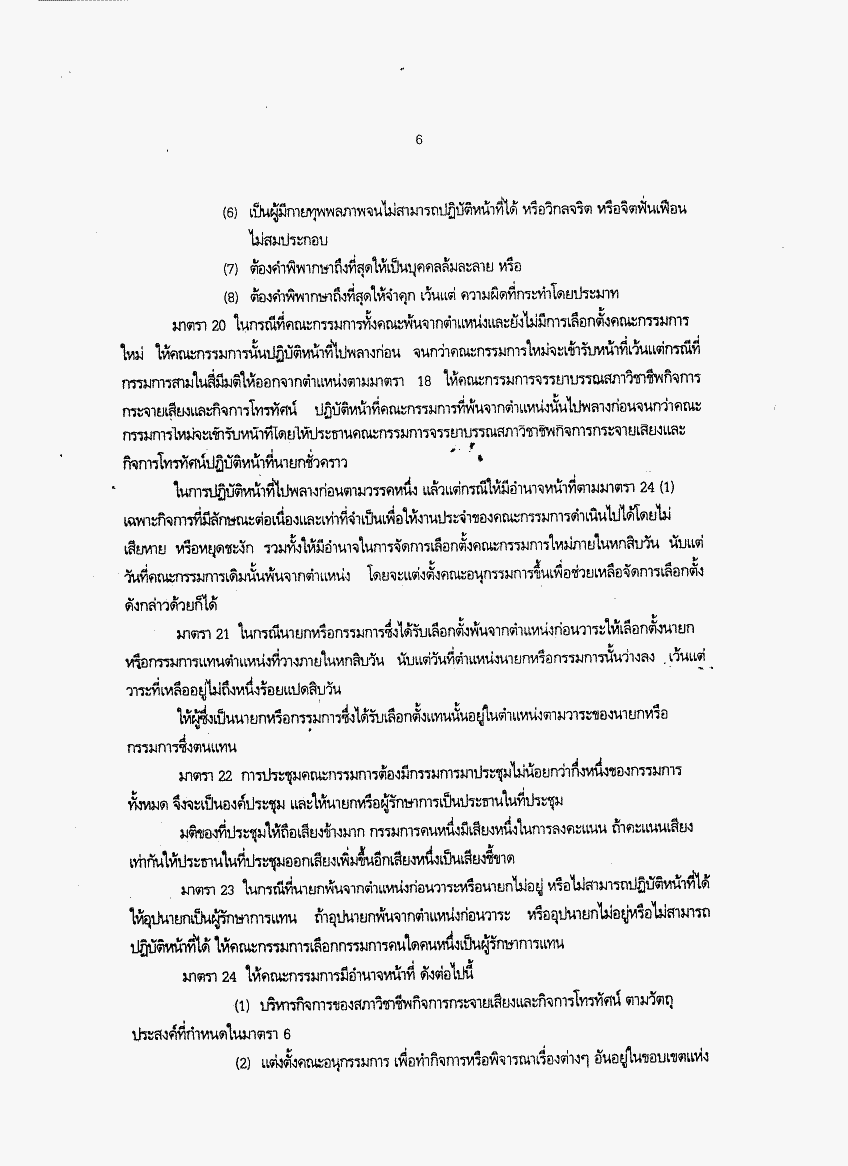 6
(6) เป็นผู้มีกายทุพพลภาพจนไม่สามารถปฏิบัติหน้าที่ได้ หรือวิกลจริต หรือจิตฟั่นเฟือน
ไม่สมประกอบ
(7) ต้องคำพิพากษาถึงที่สุดให้เป็นบุคคลล้มละลาย หรือ
(8) ต้องคำพิพากษาถึงที่สุดให้จำคุก เว้นแต่ ความผิดที่กระทำโดยประมาท
มาตรา 20 ในกรณีที่คณะกรรมการทั้งคณะพ้นจากตำแหน่งและยังไม่มีการเลือกตั้งคณะกรรมการ
ใหม่ ให้คณะกรรมการนั้นปฏิบัติหน้าที่ไปพลางก่อน จนกว่าคณะกรรมการใหม่จะเข้ารับหน้าที่เว้นแต่กรณีที่
กรรมการสามในสี่มีมติให้ออกจากตำแหน่งตามมาตรา 18 ให้คณะกรรมการจรรยาบรรณสภาวิชาชีพกิจการ
กระจายเสียงและกิจการโทรทัศน์ ปฏิบัติหน้าที่คณะกรรมการที่พ้นจากตำแหน่งนั้นไปพลางก่อนจนกว่าคณะ
กรรมการใหม่จะเข้ารับหน้าที่โดยให้ประธานคณะกรรมการจรรยาบรรณสภาวิชาชีพกิจการกระจายเสียงและ
กิจการโทรทัศน์ปฏิบัติหน้าที่นายกชั่วคราว
ในการปฏิบัติหน้าที่ไปพลางก่อนตามวรรคหนึ่ง แล้วแต่กรณีให้มีอำนาจหน้าที่ตามมาตรา 24 (1)
เฉพาะกิจการที่มีลักษณะต่อเนื่องและเท่าที่จำเป็นเพื่อให้งานประจำของคณะกรรมการดำเนินไปได้โดยไม่
เสียหาย หรือหยุดชะงัก รวมทั้งให้มีอำนาจในการจัดการเลือกตั้งคณะกรรมการใหม่ภายในหกสิบวัน นับแต่
วันที่คณะกรรมการเดิมนั้นพ้นจากตำแหน่ง โดยจะแต่งตั้งคณะอนุกรรมการขึ้นเพื่อช่วยเหลือจัดการเลือกตั้ง
ดังกล่าวด้วยก็ได้
มาตรา 21 ในกรณีนายกหรือกรรมการซึ่งได้รับเลือกตั้งพ้นจากตำแหน่งก่อนวาระให้เลือกตั้งนายก
หรือกรรมการแทนตำแหน่งที่วางภายในหกสิบวัน นับแต่วันที่ตำแหน่งนายกหรือกรรมการนั้นว่างลง เว้นแต่
วาระที่เหลืออยู่ไม่ถึงหนึ่งร้อยแปดสิบวัน
ให้ผู้ซึ่งเป็นนายกหรือกรรมการซึ่งได้รับเลือกตั้งแทนนั้นอยู่ในตำแหน่งตามวาระของนายกหรือ
กรรมการซึ่งตนแทน
มาตรา 22 การประชุมคณะกรรมการต้องมีกรรมการมาประชุมไม่น้อยกว่ากึ่งหนึ่งของกรรมการ
ทั้งหมด จึงจะเป็นองค์ประชุม และให้นายกหรือผู้รักษาการเป็นประธานในที่ประชุม
มติของที่ประชุมให้ถือเสียงข้างมาก กรรมการคนหนึ่งมีเสียงหนึ่งในการลงคะแนน ถ้าคะแนนเสียง
เท่ากันให้ประธานในที่ประชุมออกเสียงเพิ่มขึ้นอีกเสียงหนึ่งเป็นเสียงชี้ขาด
มาตรา 23 ในกรณีที่นายกพ้นจากตำแหน่งก่อนวาระหรือนายกไม่อยู่ หรือไม่สามารถปฏิบัติหน้าที่ได้
ให้อุปนายกเป็นผู้รักษาการแทน ถ้าอุปนายกพ้นจากตำแหน่งก่อนวาระ หรืออุปนายกไม่อยู่หรือไม่สามารถ
ปฏิบัติหน้าที่ได้ ให้คณะกรรมการเลือกกรรมการคนใดคนหนึ่งเป็นผู้รักษาการแทน
มาตรา 24 ให้คณะกรรมการมีอำนาจหน้าที่ ดังต่อไปนี้
(1) บริหารกิจการของสภาวิชาชีพกิจการกระจายเสียงและกิจการโทรทัศน์ ตามวัตถุ
ประสงค์ที่กำหนดในมาตรา 6
(2) แต่งตั้งคณะอนุกรรมการ เพื่อทำกิจการหรือพิจารณาเรื่องต่างๆ อันอยู่ในขอบเขตแห่ง